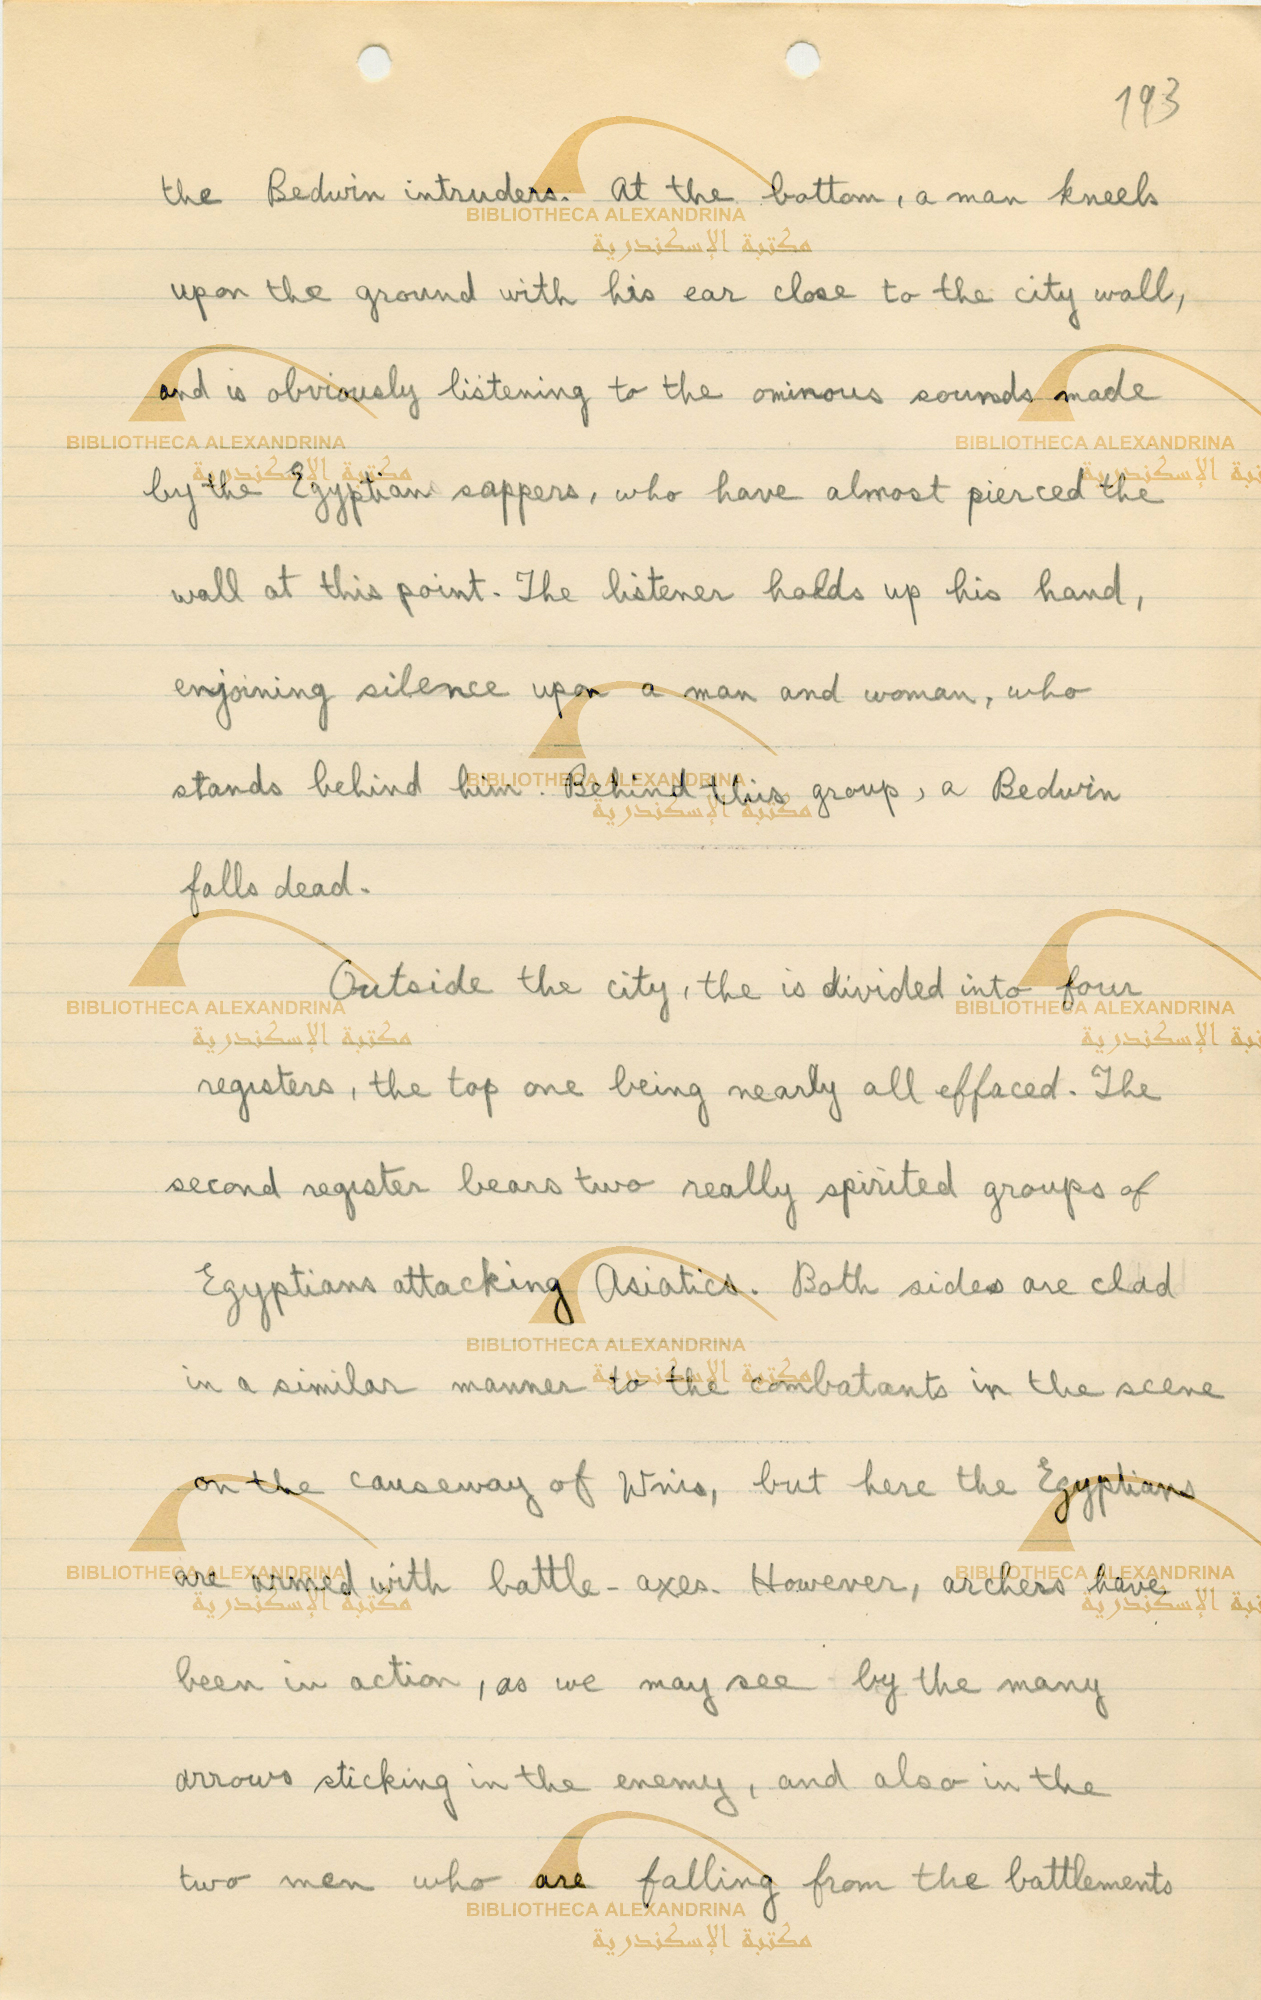 193
the Bedwin intruders. At the bottom, a man kneels
upon the ground with his ear close to the city wall,
and is obviously listening to the ominous sounds made
by the Egyptian sappers, who have almost pierced the
wall at this point. The listener holds up his hand,
enjoining silence upon a man and woman, who
stands behind him. Behind this group, a Bedwin
falls dead.
Outside the city, the is divided into four
registers, the top one being nearly all effaced. The
second register bears two really spirited groups of
Egyptians attacking Asiatics. Both sides are clad
in a similar manner to the combatants in the scene
on the causeway of Wnis, but here the Egyptians
are armed with battle-axes. However, archers have
been in action, as we may see by the many
arrows sticking in the enemy, and also in the
two men who are falling from the battlements
BIBLIOTHECA ALEXANDRINA
مكتبة الإسكندرية
BIBLIOTHECA ALEXANDRINA
مكتبة الإسكندرية
BIBLIOTHECA ALEXANDRINA
مكتبة الإسكندرية
BIBLIOTHECA ALEXANDRINA
مكتبة الإسكندرية
BIBLIOTHECA ALEXANDRINA
مكتبة الإسكندرية
BIBLIOTHECA ALEXANDRINA
مكتبة الإسكندرية
BIBLIOTHECA ALEXANDRINA
مكتبة الإسكندرية
BIBLIOTHECA ALEXANDRINA
مكتبة الإسكندرية
BIBLIOTHECA ALEXANDRINA
مكتبة الإسكندرية
BIBLIOTHECA ALEXANDRINA
مكتبة الإسكندرية